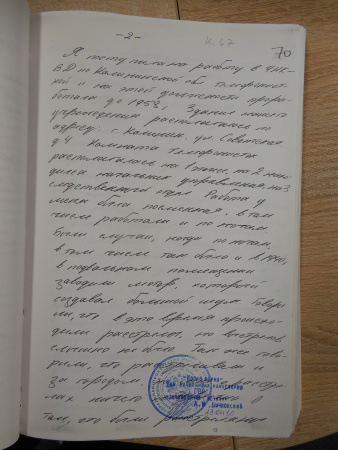 -2-
К. 67
70
Я поступила на работу в УНК-
ВД по Калининской обл телефонист-
кой и на этой должности прора-
ботала до 1953г. Здание нашего
учреждения располагалось по
адресу: г. Калинин, ул. Советская
д 4 Комната телефонисток
располагалась на 1 этаже, на 2 нахо-
дилось начальник управления, на 3
следственный отдел Работа у
меня была посменная, в том
числе работали и по ночам
Были случаи, когда по ночам,
в том числе так было и в 1940,
в подвальном помещении
заводили мотор, который
создавал большой шум Гово-
ли, что в это время происхо-
дили расстрелы, но выстрелов
слышно не было Там же гово-
рили, что расстреливали и
за городом,
лах ничего о
том, что были расстреляны